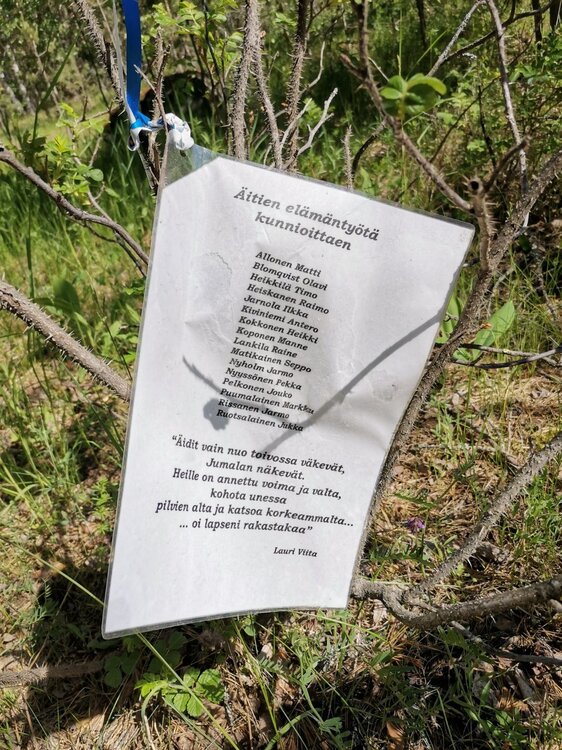 Äitien elämäntyötä
kunnioittaen
Allonen Matti
Blomqvist Olavi
Heikkilä Timo
Heiskanen Raimo
Jarnola Ilkka
Kiviniemi Antero
Kokkonen Heikki
Koponen Manne
Lankila Raine
Matikainen Seppo
Nyholm Jarmo
Nyyssönen Pekka
Pelkonen Jouko
Puumalainen Markku
Rissanen Jarmo
Ruotsalainen Jukka
“Äidit vain nuo toivossa väkevät,
Jumalan näkevät.
Heille on annettu voima ja valta,
kohota unessa
pilvien alta ja katsoa korkeammalta...
... oi lapseni rakastakaa”
Lauri Viita